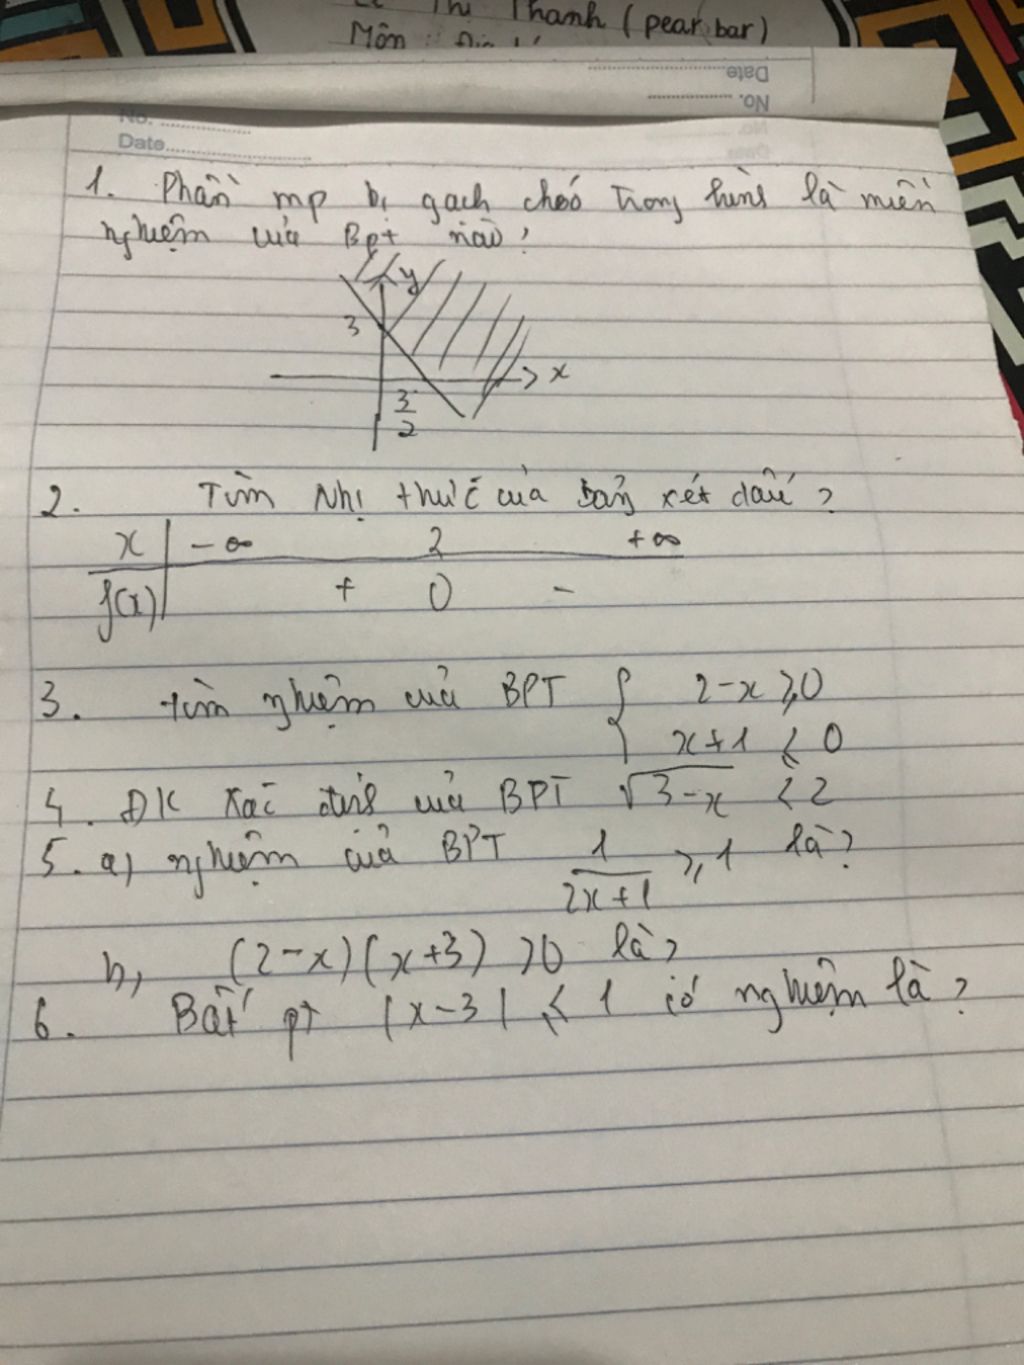 Thị Thanh (pear bar)
Môn :
Date
No.
No.
Date
1. Phần mp bị gạch chéo trong hình là miền
nghiệm của Bpt nào?
y
3
x
3
2
2. Tìm Nhị thức của bảng xét dấu?
x | -∞ 2 +∞
f(x) | + 0 -
3. tìm nghiệm của BPT { 2-x ≥ 0
x+1 ≤ 0
4. ĐK xác định của BPT √3-x < 2
5. a, nghiệm của BPT 1/2x+1 ≥ 1 là?
b, (2-x)(x+3) > 0 là?
6. Bất pt |x-3| ≤ 1 có nghiệm là?